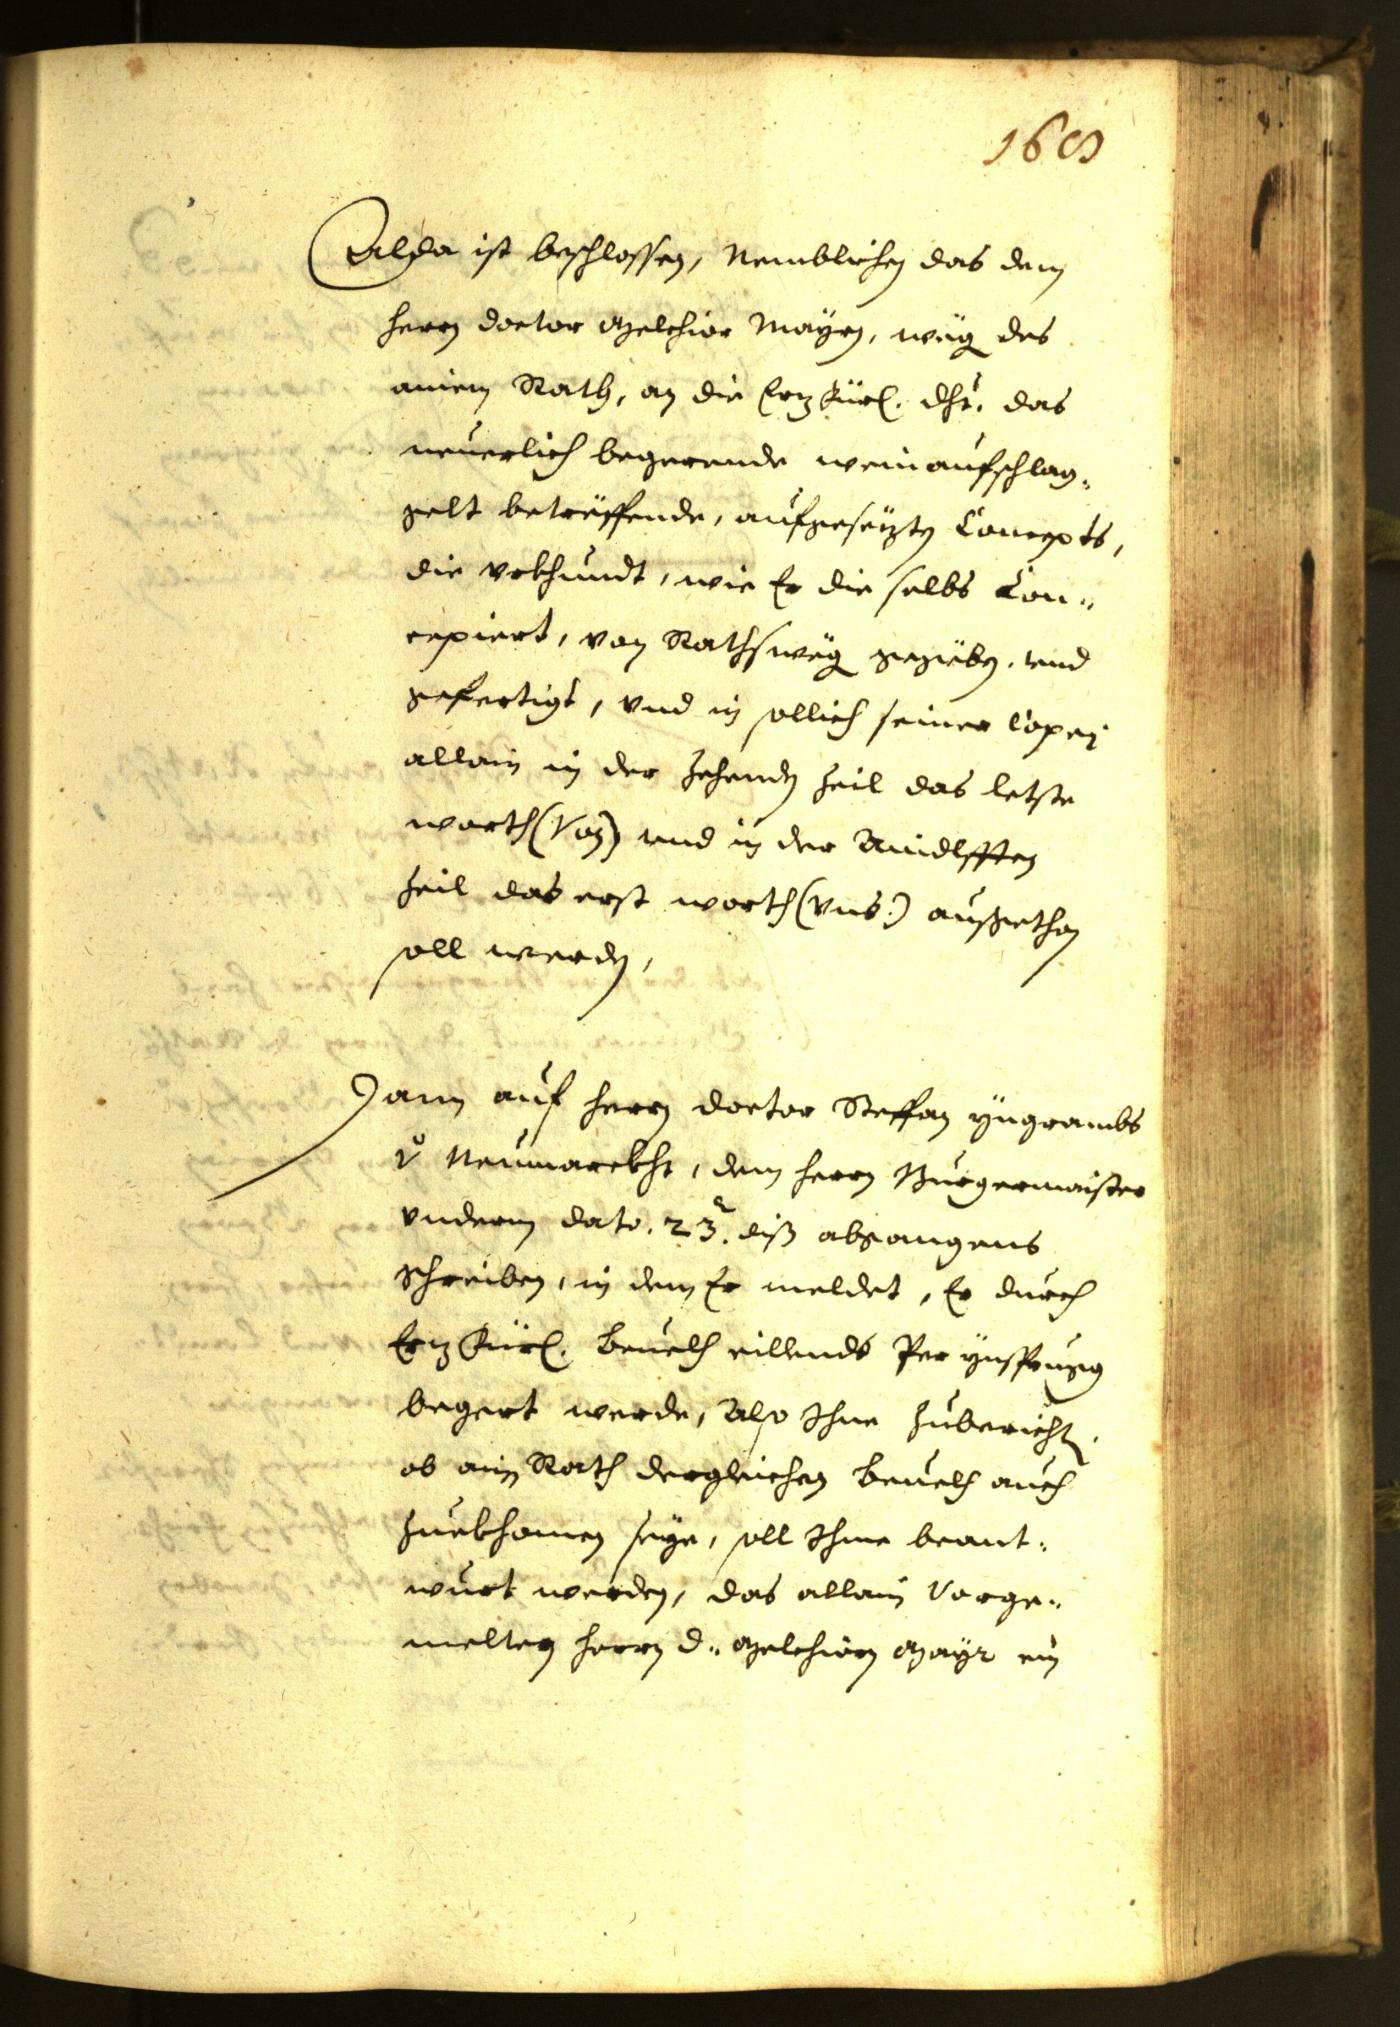 168
Alda ist beschlossen, Nemblichen das dem
herrn doctor Melchior Mayrn, weg des
ainem Rath, an die Erzfürl. dht. das
neuerlich begerende weinaufschlag„
gelt betreffende, aufgesezten Concepts,
die vrkhundt, wie Er die selbs Con„
cepiert, von Rathsweg gegeben, vnd
gefertigt, vnd in sollich seiner Copej
allain in der zehenden zeil das letste
worth (Von) vnd in der Aindlfften
zeil das erst worth (vns.) außgethon
soll werden,
Dann auf herrn doctor Steffan Yngrambs
v Neumarckht, dem herrn Burgermaister
vnderm dato. 23. diß abgangens
schreiben, in dem Er meldet, Er durch
Erzfürl. beuelch eillends Per Ynsprugg
begert werde, Also Ihne zuberichten,
ob ain Rath dergleichen beuelch auch
zuekhomen seye, soll Ihme beant„
wurt werden, das allain Vorge„
melten herrn d„ Melchiorn Mayr ein